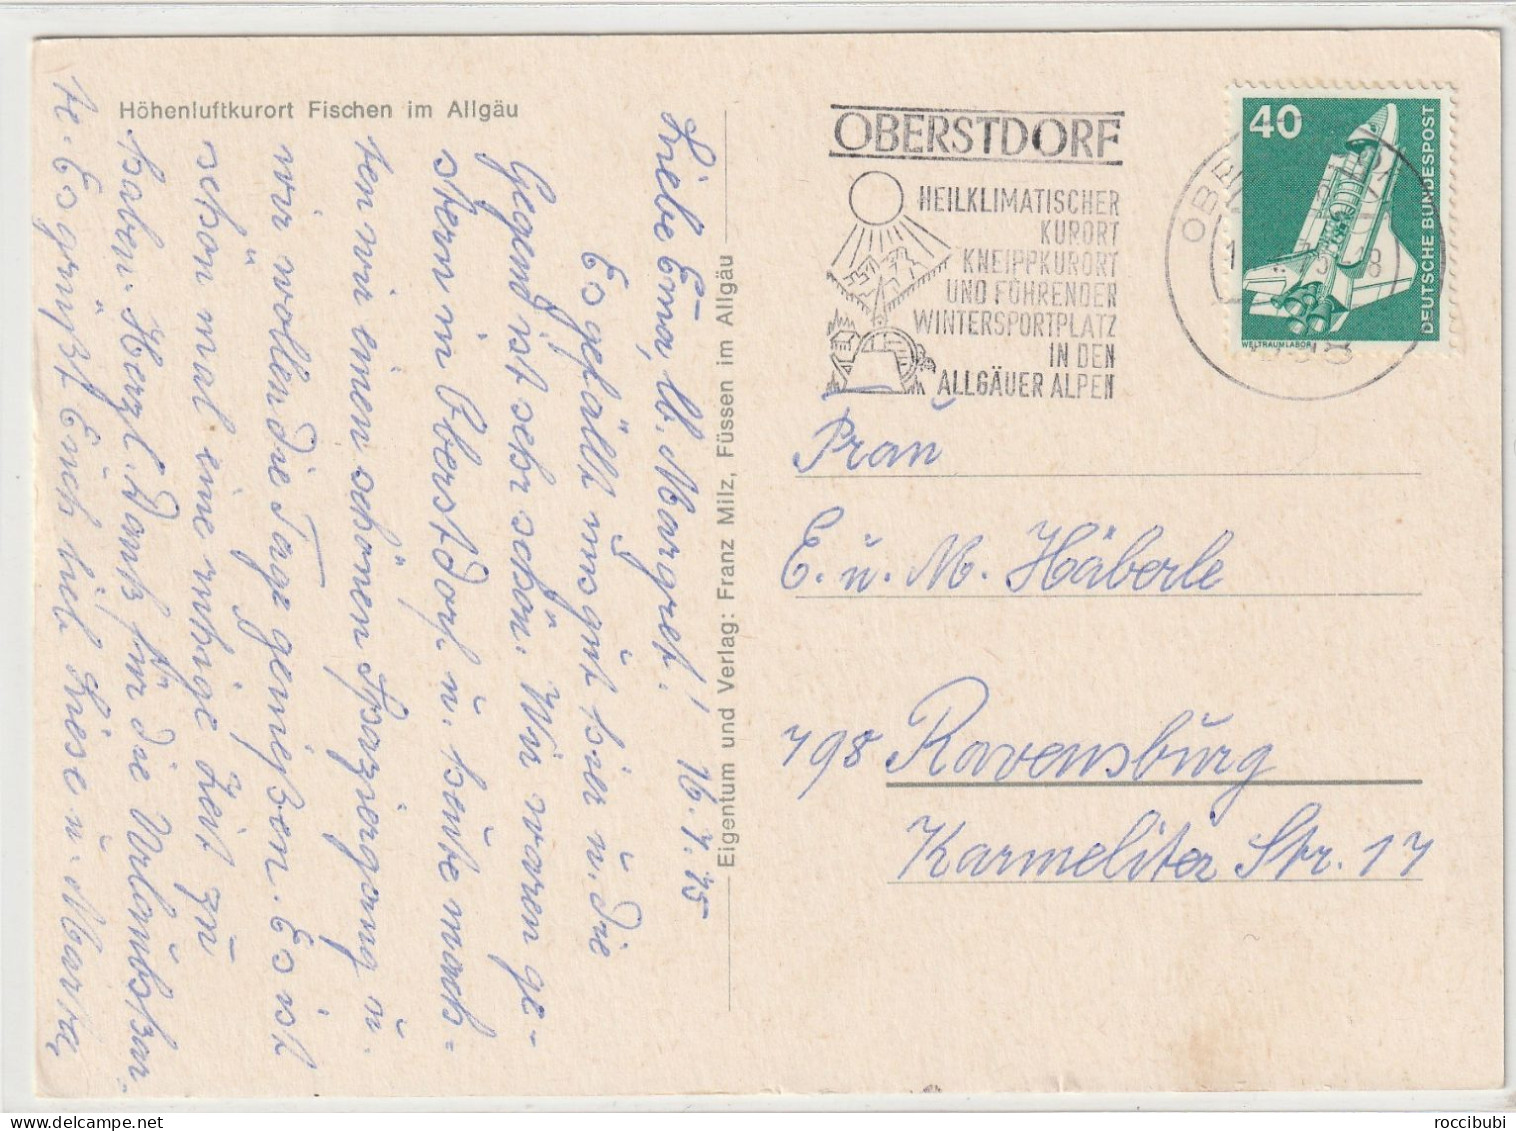 Höhenluftkurort Fischen im Allgäu
Liebe Ema, lb. Margret! 16.7.75
Es gefällt uns gut hier u. die
Gegend ist sehr schön. Wir waren ge-
stern in Oberstdorf u. heute mach-
ten wir einen schönen Spaziergang u.
wir wollen die Tage genießen. Es ist
schön mal eine ruhige Zeit zu
haben. Herzl. Dank für die Urlaubskar-
te. Es grüßt Euch viel Liese u. Marta
Eigentum und Verlag: Franz Milz, Füssen im Allgäu
OBERSTDORF
HEILKLIMATISCHER
KURORT
KNEIPPKURORT
UND FÜHRENDER
WINTERSPORTPLATZ
IN DEN
ALLGÄUER ALPEN
40
DEUTSCHE BUNDESPOST
WELTRAUMLABOR
Frau
E. u. M. Häberle
798 Ravensburg
Karmeliter Str. 17
roccibubi